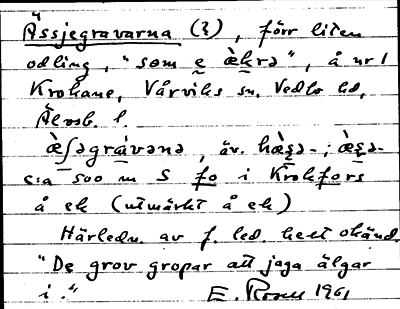 Ässjegravarna (?), förr liten
odling, "som e ækrə", å nr 1
Krokane, Vårviks sn, Vedbo hd,
Älvsb. l.
æ̀ʃəgràvənə, äv. hæ̀ʂə-; æ̀ʂə-
c:a 500 m S fo i Krokfors
å ek (utmärkt å ek)
Härledn. av f. led. helt okänd.
"De grov gropar att jaga älgar
i." E. 1961